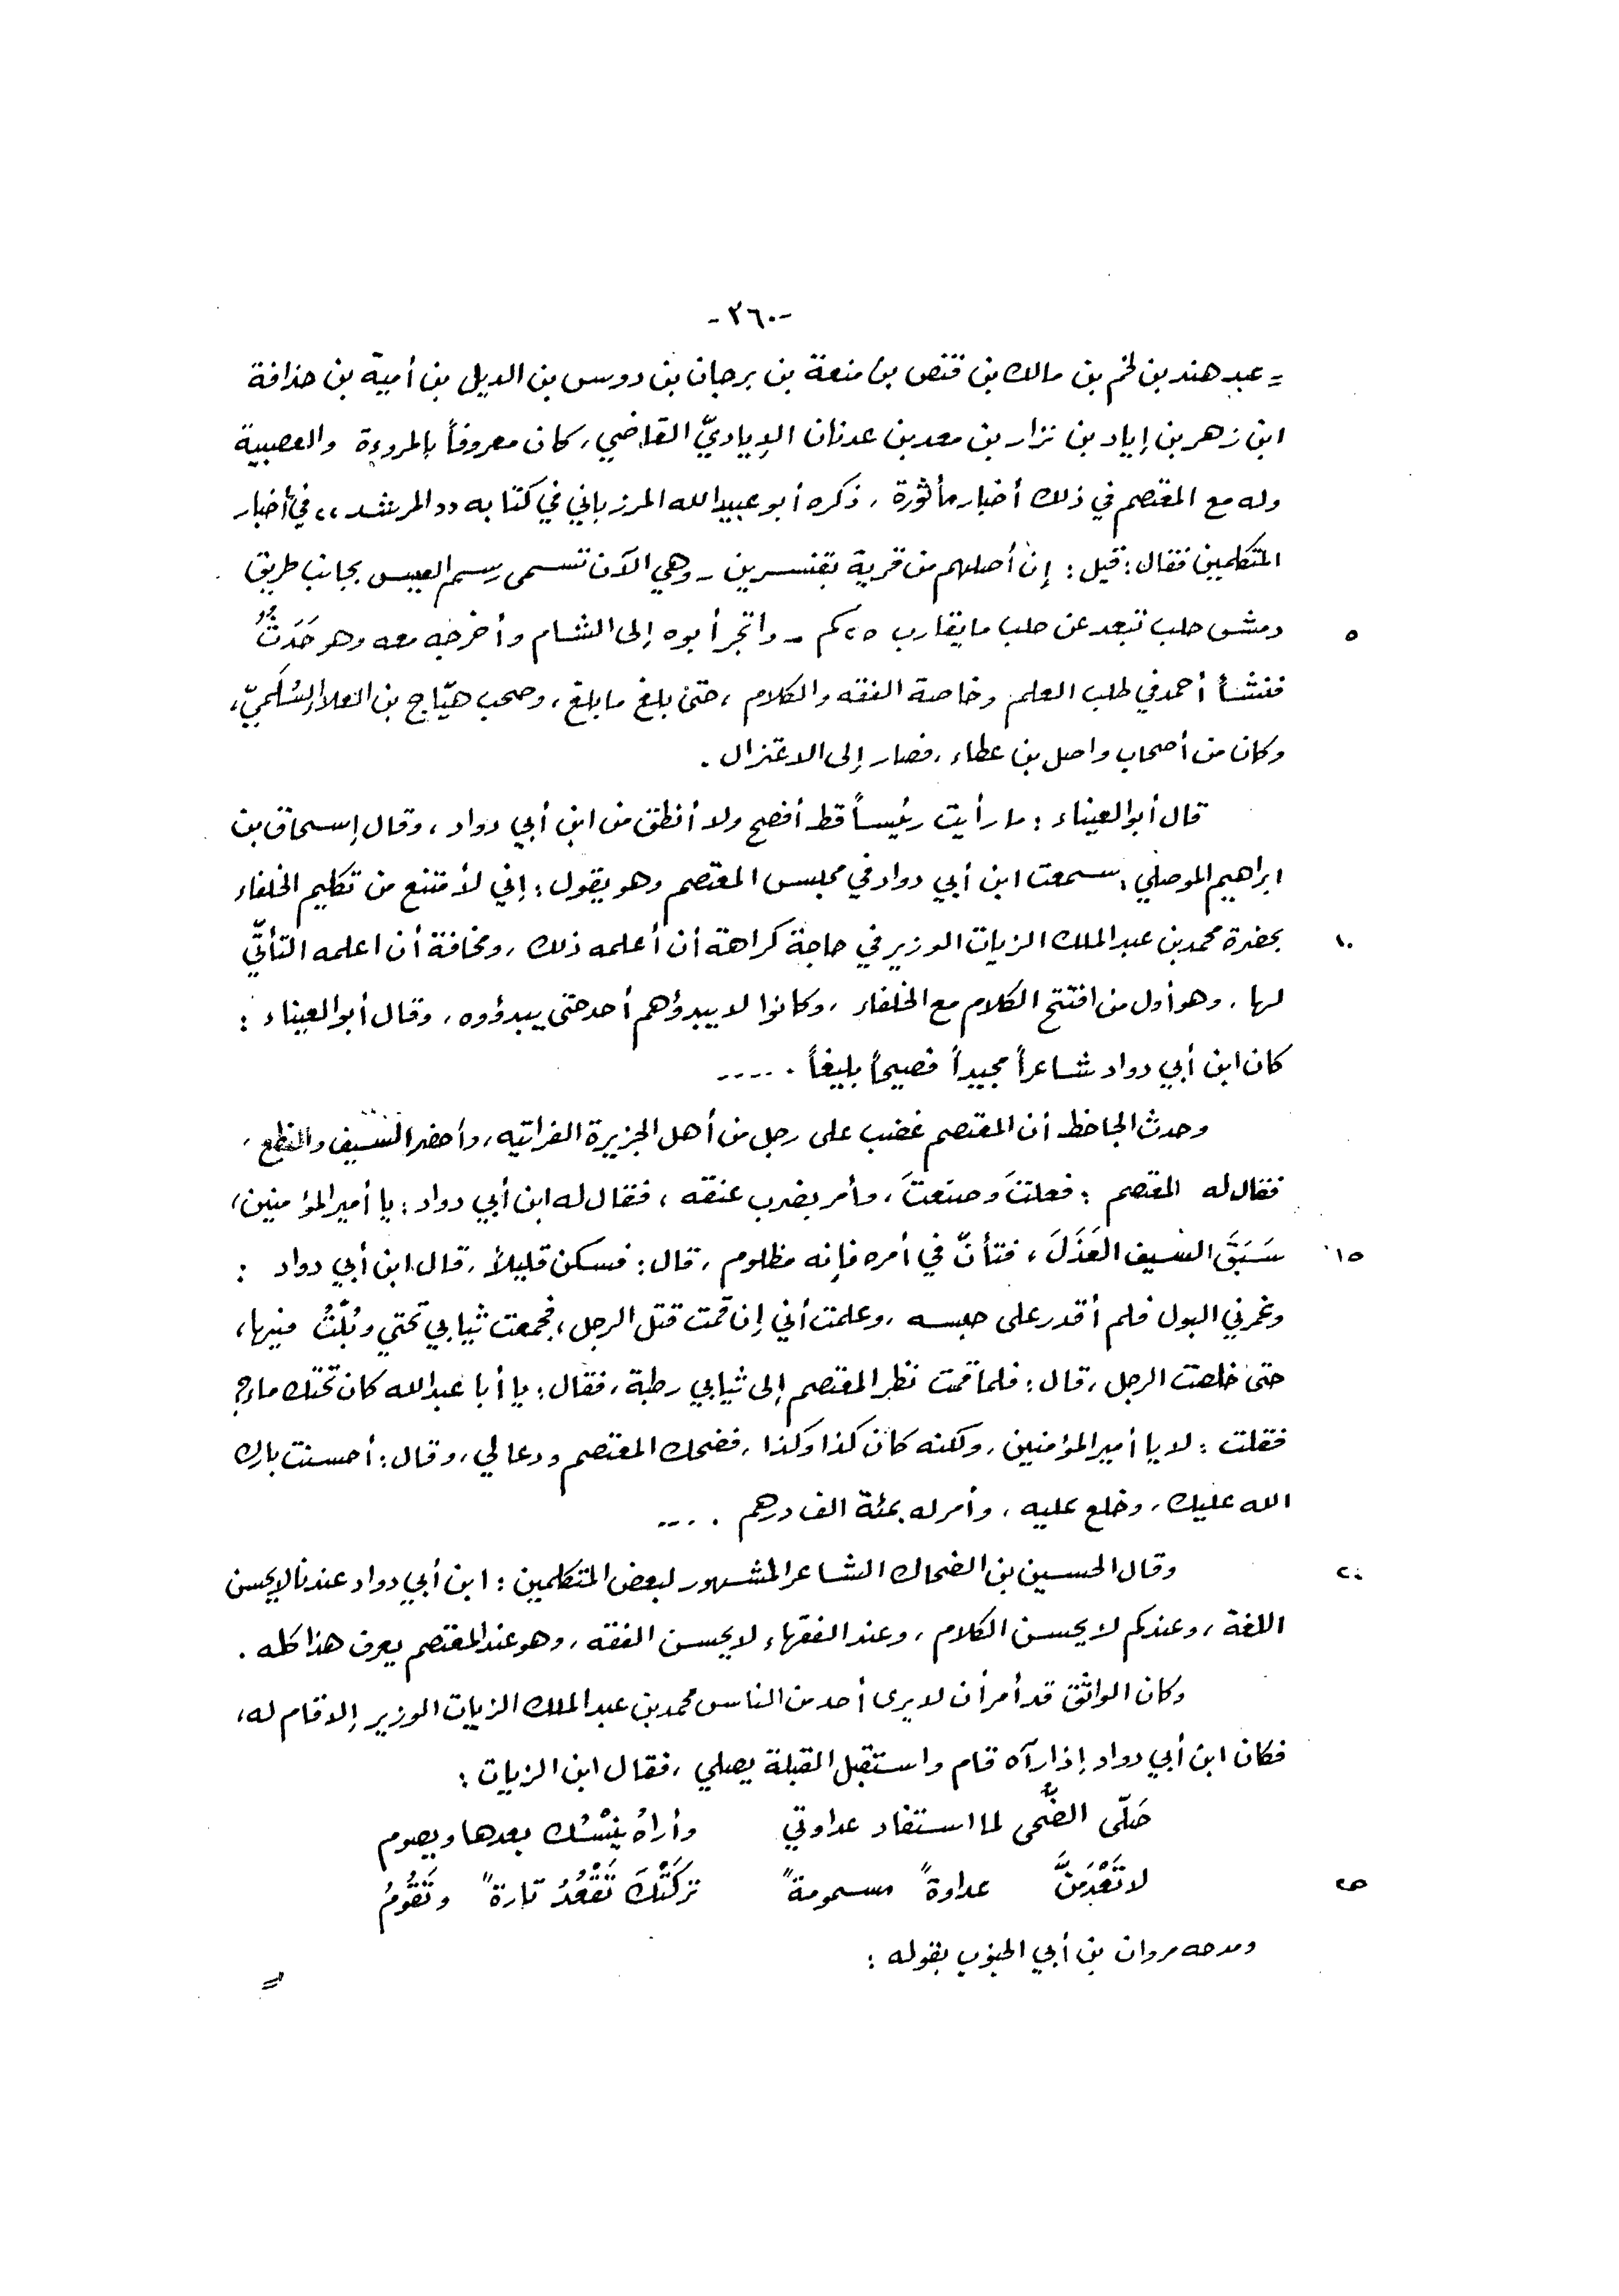 -٣٦٠-
= عبد هند بن لخم بن مالك بن قنص بن منعة بن برجان بن دوس بن الديل بن أمية بن حذافة
ابن زهر بن إياد بن نزار بن معد بن عدنان الإياديّ القاضي، كان معروفاً بالمروءة والعصبية
وله مع المعتصم في ذلك أخبار مأثورة، ذكره أبو عبيد الله المرزباني في كتابه ((المرشد،، في أخبار
المتكلمين فقال: قيل: إن أصلهم من قرية بقنسرين - وهي الآن تسمى رسم العيس بجانب طريق
٥ دمشق حلب تبعد عن حلب ما يقارب ٢٥ كم - واتّجر أبوه إلى الشام وأخرجه معه وهو حَدَثٌ
فنشأ أحمد في طلب العلم وخاصة الفقه والكلام، حتى بلغ ما بلغ، وصحب هيّاج بن العلاء السُلَميّ،
وكان من أصحاب واصل بن عطاء، فصار إلى الاعتزال.
قال أبو العيناء: ما رأيت رئيساً قط أفصح ولا أنطق من ابن أبي دواد، وقال إسحاق بن
ابراهيم الموصلي: سمعت ابن أبي دواد في مجلس المعتصم وهو يقول: إني لأمتنع من تكليم الخلفاء
١٠ بحضرة محمد بن عبد الملك الزيات الوزير في حاجة كراهة أن أعلمه ذلك، ومخافة أن اعلمه التأتّي
لها، وهو أول من افتتح الكلام مع الخلفاء، وكانوا لا يبدؤهم أحد حتى يبدؤوه، وقال أبو العيناء:
كان ابن أبي دواد شاعراً مجيداً فصيحاً بليغاً . ....
وحدث الجاحظ أن المعتصم غضب على رجل من أهل الجزيرة الفراتية، وأحضر السيف والنطع،
فقال له المعتصم: فعلتَ وصنعتَ، وأمر بضرب عنقه، فقال له ابن أبي دواد: يا أمير المؤمنين،
١٥ سَبَقَ السيف العَذَلَ، فتأنّ في أمره فإنه مظلوم، قال: فسكن قليلاً، قال ابن أبي دواد:
وغمرني البول فلم أقدر على حبسه، وعلمت أني إن قمت قتل الرجل، فجمعت ثيابي تحتي وبُلْتُ فيها،
حتى خلصت الرجل، قال: فلما قمت نظر المعتصم إلى ثيابي رطبة، فقال: يا أبا عبد الله كان تحتك ماء؟
فقلت: لا يا أمير المؤمنين، ولكنه كان كذا وكذا، فضحك المعتصم ودعا لي، وقال: أحسنت بارك
الله عليك، وخلع عليه، وأمر له بمئة الف درهم . ...
٢٠ وقال الحسين بن الضحاك الشاعر المشهور لبعض المتكلمين: ابن أبي دواد عندنا لا يحسن
اللغة، وعندكم لا يحسن الكلام، وعند الفقهاء لا يحسن الفقه، وهو عند المعتصم يعرف هذا كله.
وكان الواثق قد أمر أن لا يرى أحد من الناس محمد بن عبد الملك الزيات الوزير إلا قام له،
فكان ابن أبي دواد إذا رآه قام واستقبل القبلة يصلي، فقال ابن الزيات:
صَلّى الضُّحى لما استفاد عداوتي وأراهُ ينْسُك بعدها ويصوم
٢٥ لا تَعْدَمَنَّ عداوةً مسمومةً تركَتْكَ تَقْعُدُ تارةً وتَقُومُ
ومدحه مروان بن أبي الجنوب بقوله:
=